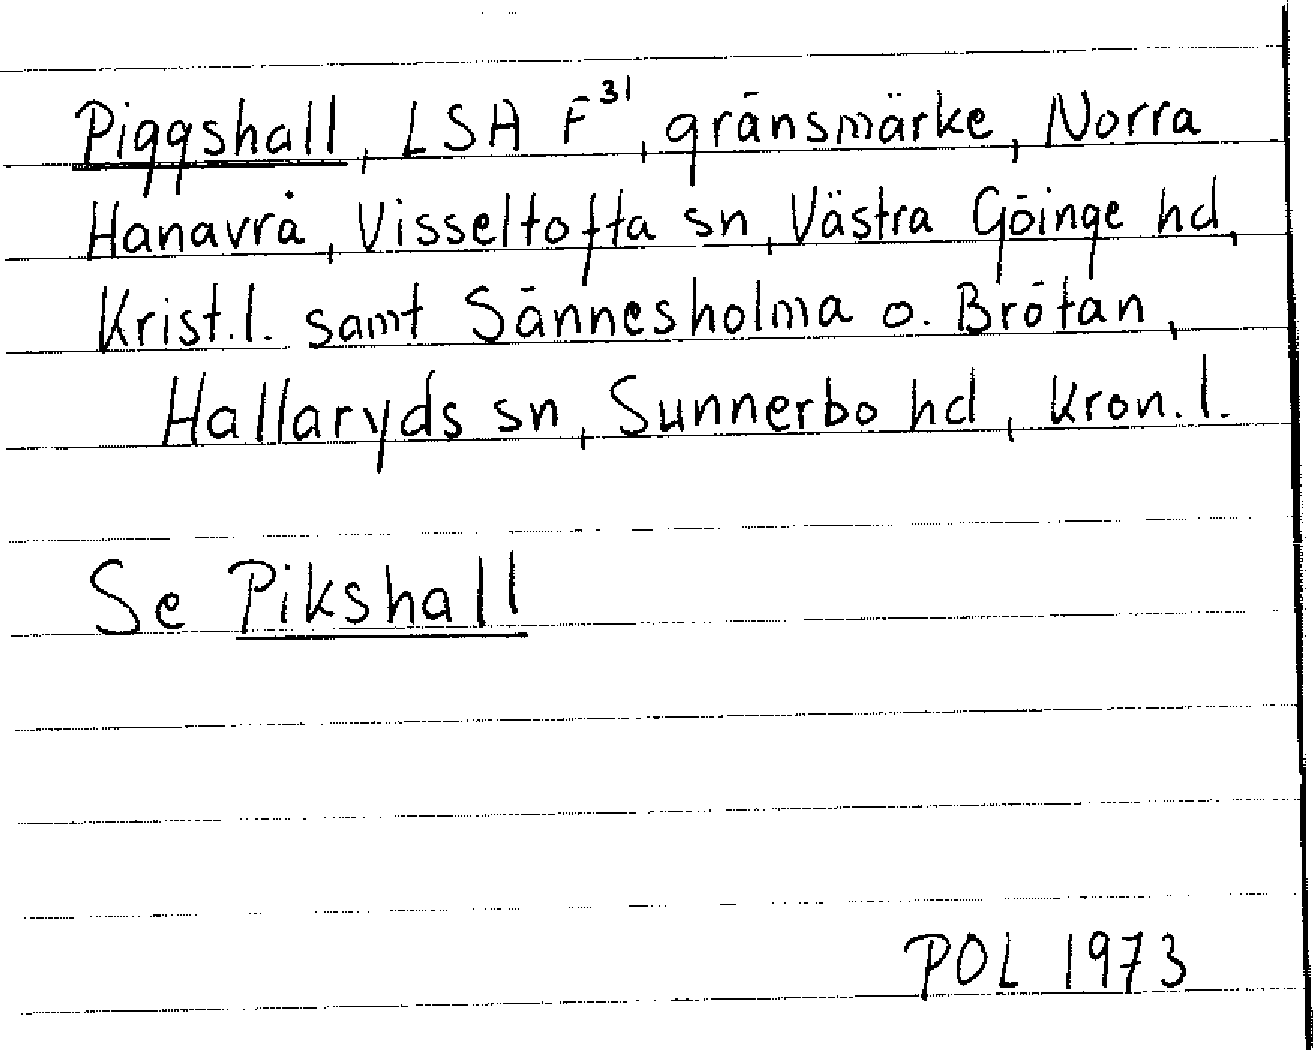 Piggshall, LSA F³¹, gränsmärke, Norra
Hanavrå, Visseltofta sn, Västra Göinge hd,
Krist.l. samt Sännesholma o. Brötan,
Hallaryds sn, Sunnerbo hd, Kron.l.
Se Pikshall
POL 1973